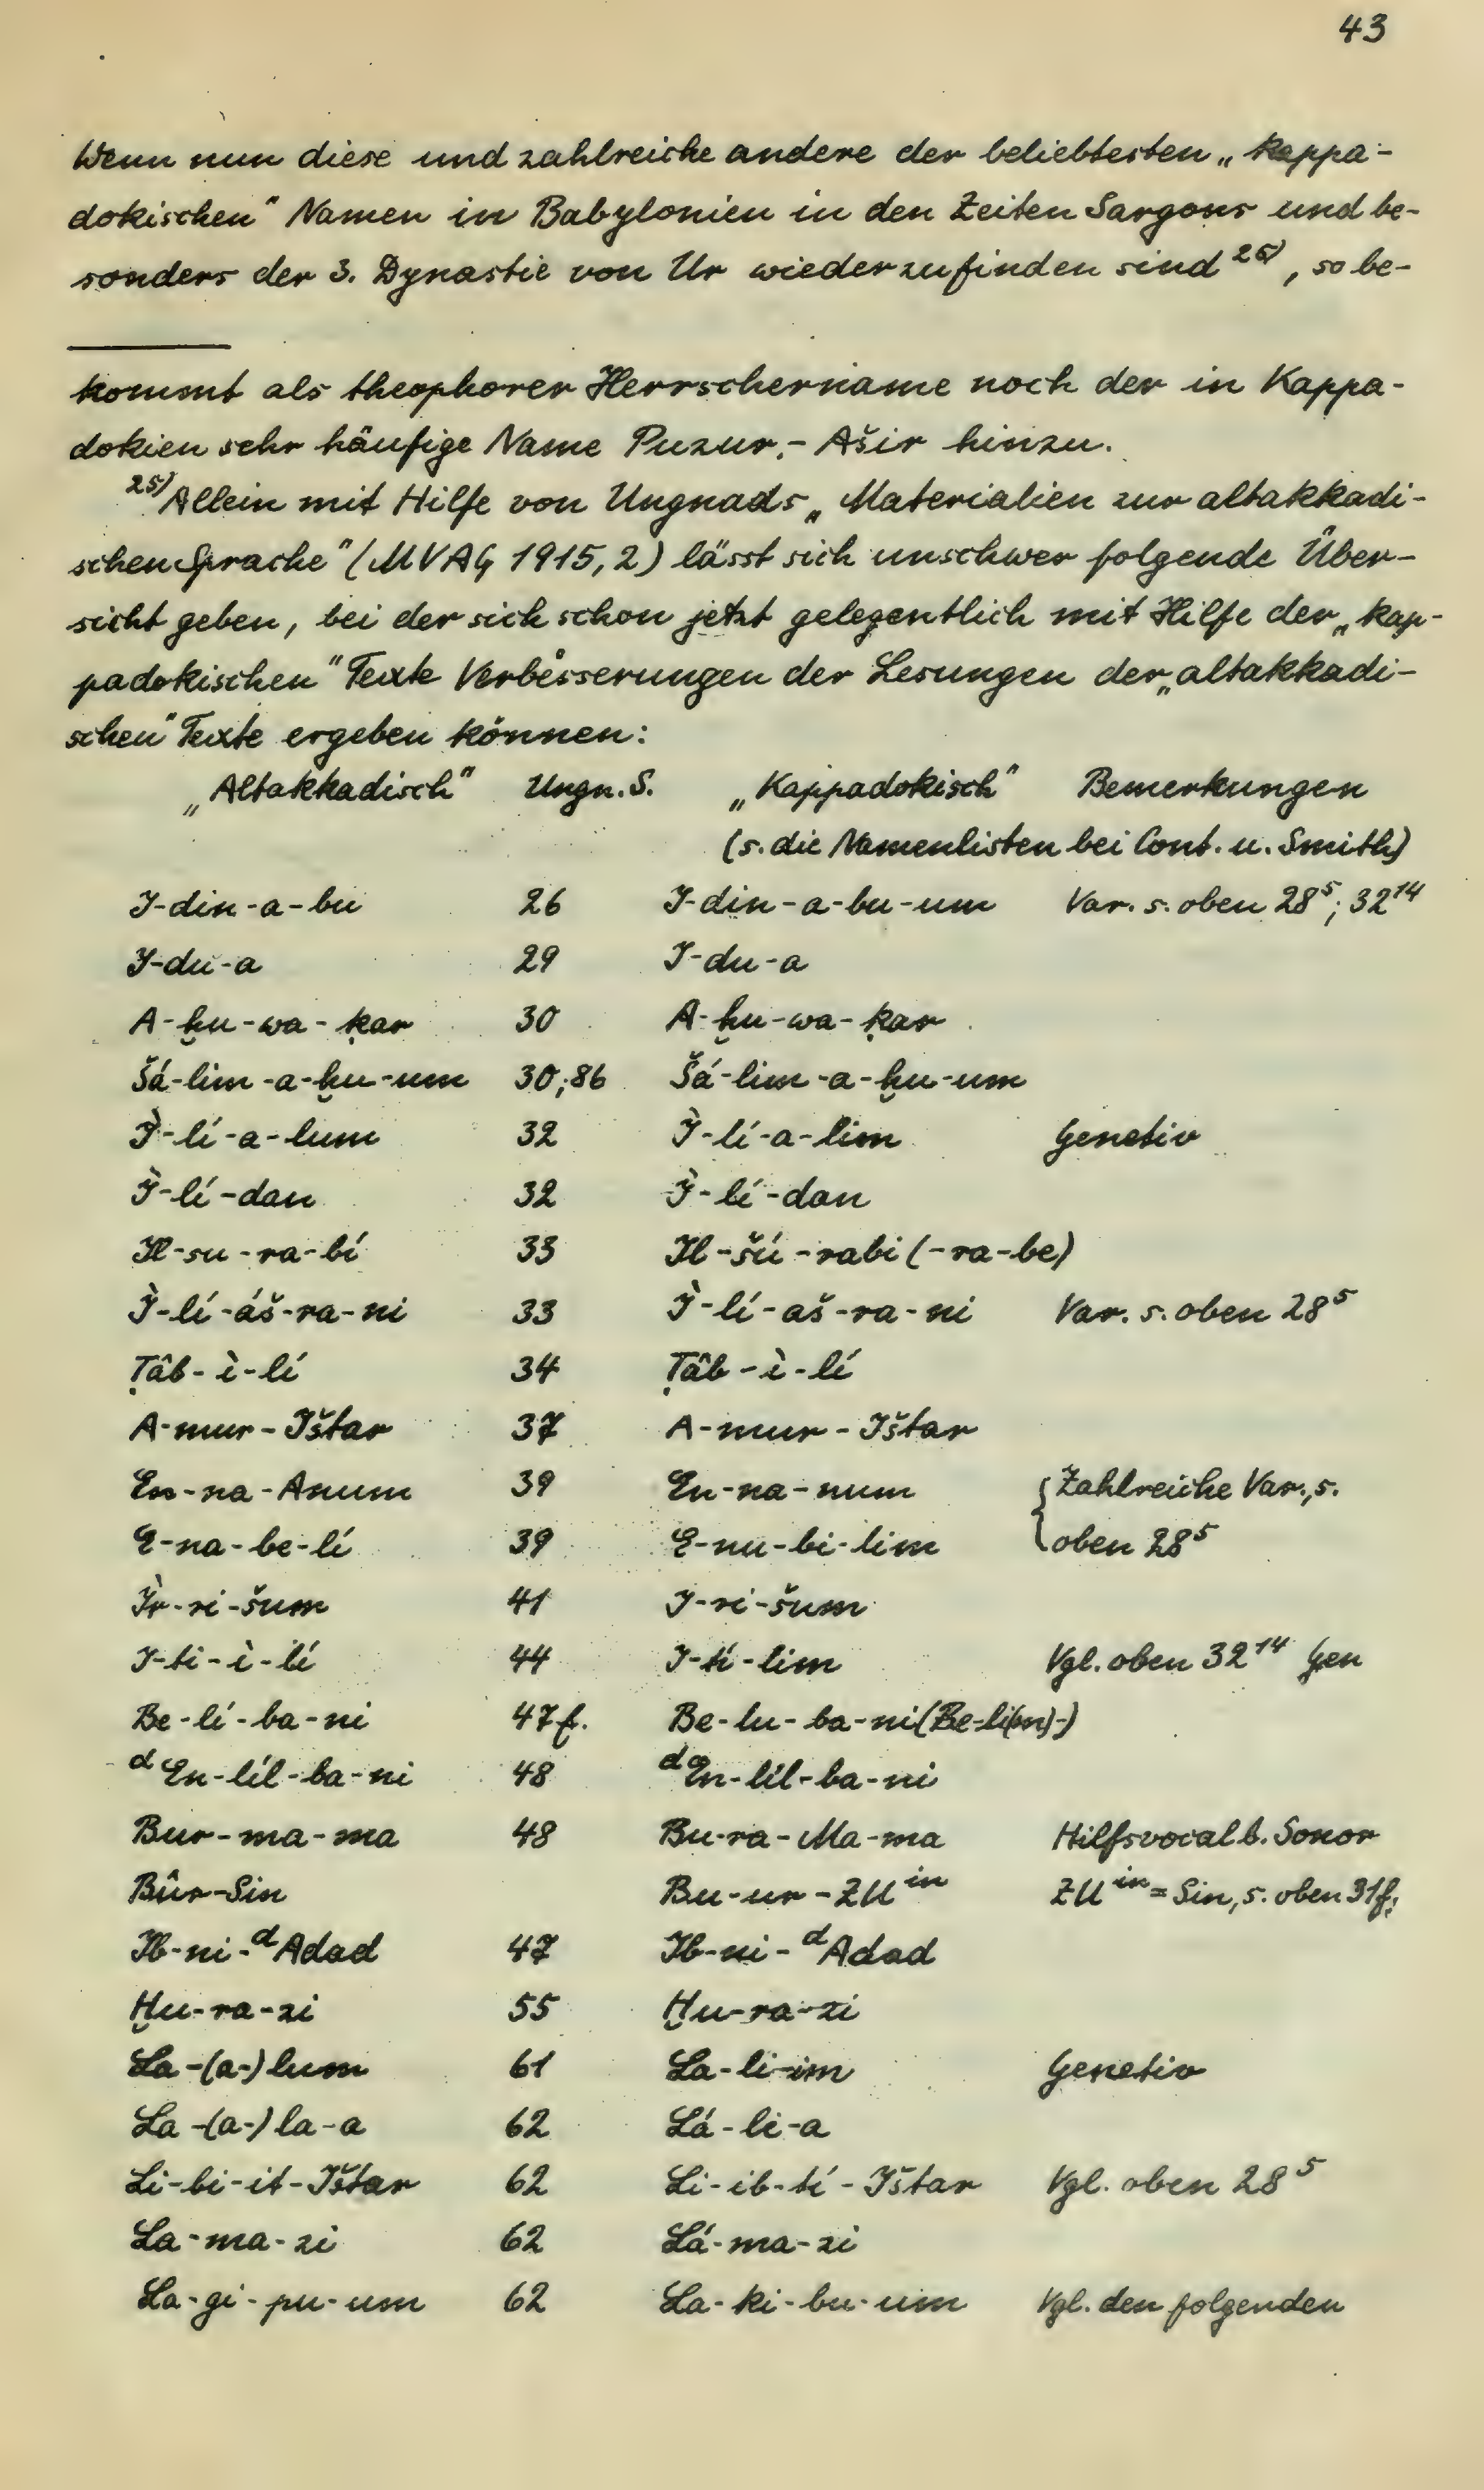 43
Wenn nun diese und zahlreiche andere der beliebtesten „Kappa-
dokischen" Namen in Babylonien in den Zeiten Sargons und be-
sonders der 3. Dynastie von Ur wiederzufinden sind 25), so be-
kommt als theophorer Herrschername noch der in Kappa-
dokien sehr häufige Name Puzur-Ašir hinzu.
25) Allein mit Hilfe von Ungnads „Materialien zur altakkadi-
schen Sprache" (MVAG 1915, 2) lässt sich unschwer folgende Über-
sicht geben, bei der sich schon jetzt gelegentlich mit Hilfe der „kap-
padokischen" Texte Verbesserungen der Lesungen der „altakkadi-
schen" Texte ergeben können:
„Altakkadisch" Ungn. S. „Kappadokisch" Bemerkungen
(s. die Namenlisten bei Cont. u. Smith)
I-din-a-bu 26 I-din-a-bu-um Var. s. oben 28⁵; 32¹⁴
I-du-a 29 I-du-a
A-ḫu-wa-ḳar 30 A-ḫu-wa-ḳar
Šá-lim-a-ḫu-um 30;86 Šá-lim-a-ḫu-um
Ì-lí-a-lum 32 Ì-lí-a-lim Genetiv
Ì-lí-dan 32 Ì-lí-dan
Il-su-ra-bí 33 Il-šú-rabi (-ra-be)
Ì-lí-áš-ra-ni 33 Ì-lí-aš-ra-ni Var. s. oben 28⁵
Ṭâb-ì-lí 34 Ṭâb-ì-lí
A-mur-Ištar 37 A-mur-Ištar
En-na-Anum 39 En-na-num {Zahlreiche Var., s.
E-na-be-lí 39 E-nu-bi-lim oben 28⁵
Ìr-ri-šum 41 I-ri-šum
I-ti-ì-lí 44 I-tí-lim Vgl. oben 32¹⁴ Gen
Be-lí-ba-ni 47f. Be-lu-ba-ni (Be-li(m)-)
ᵈEn-líl-ba-ni 48 ᵈEn-líl-ba-ni
Bur-ma-ma 48 Bu-ra-Ma-ma Hilfsvocal b. Sonor
Bûr-Sin Bu-ur-ZUⁱⁿ ZUⁱⁿ = Sin, s. oben 31f.
Ib-ni-ᵈAdad 47 Ib-ni-ᵈAdad
Ḫu-ra-zi 55 Ḫu-ra-zi
La-(a-)lum 61 La-li-im Genetiv
La-(a-)la-a 62 Lá-li-a
Li-bi-it-Ištar 62 Li-ib-tí-Ištar Vgl. oben 28⁵
La-ma-zi 62 Lá-ma-zi
La-gi-pu-um 62 La-ki-bu-um Vgl. den folgenden